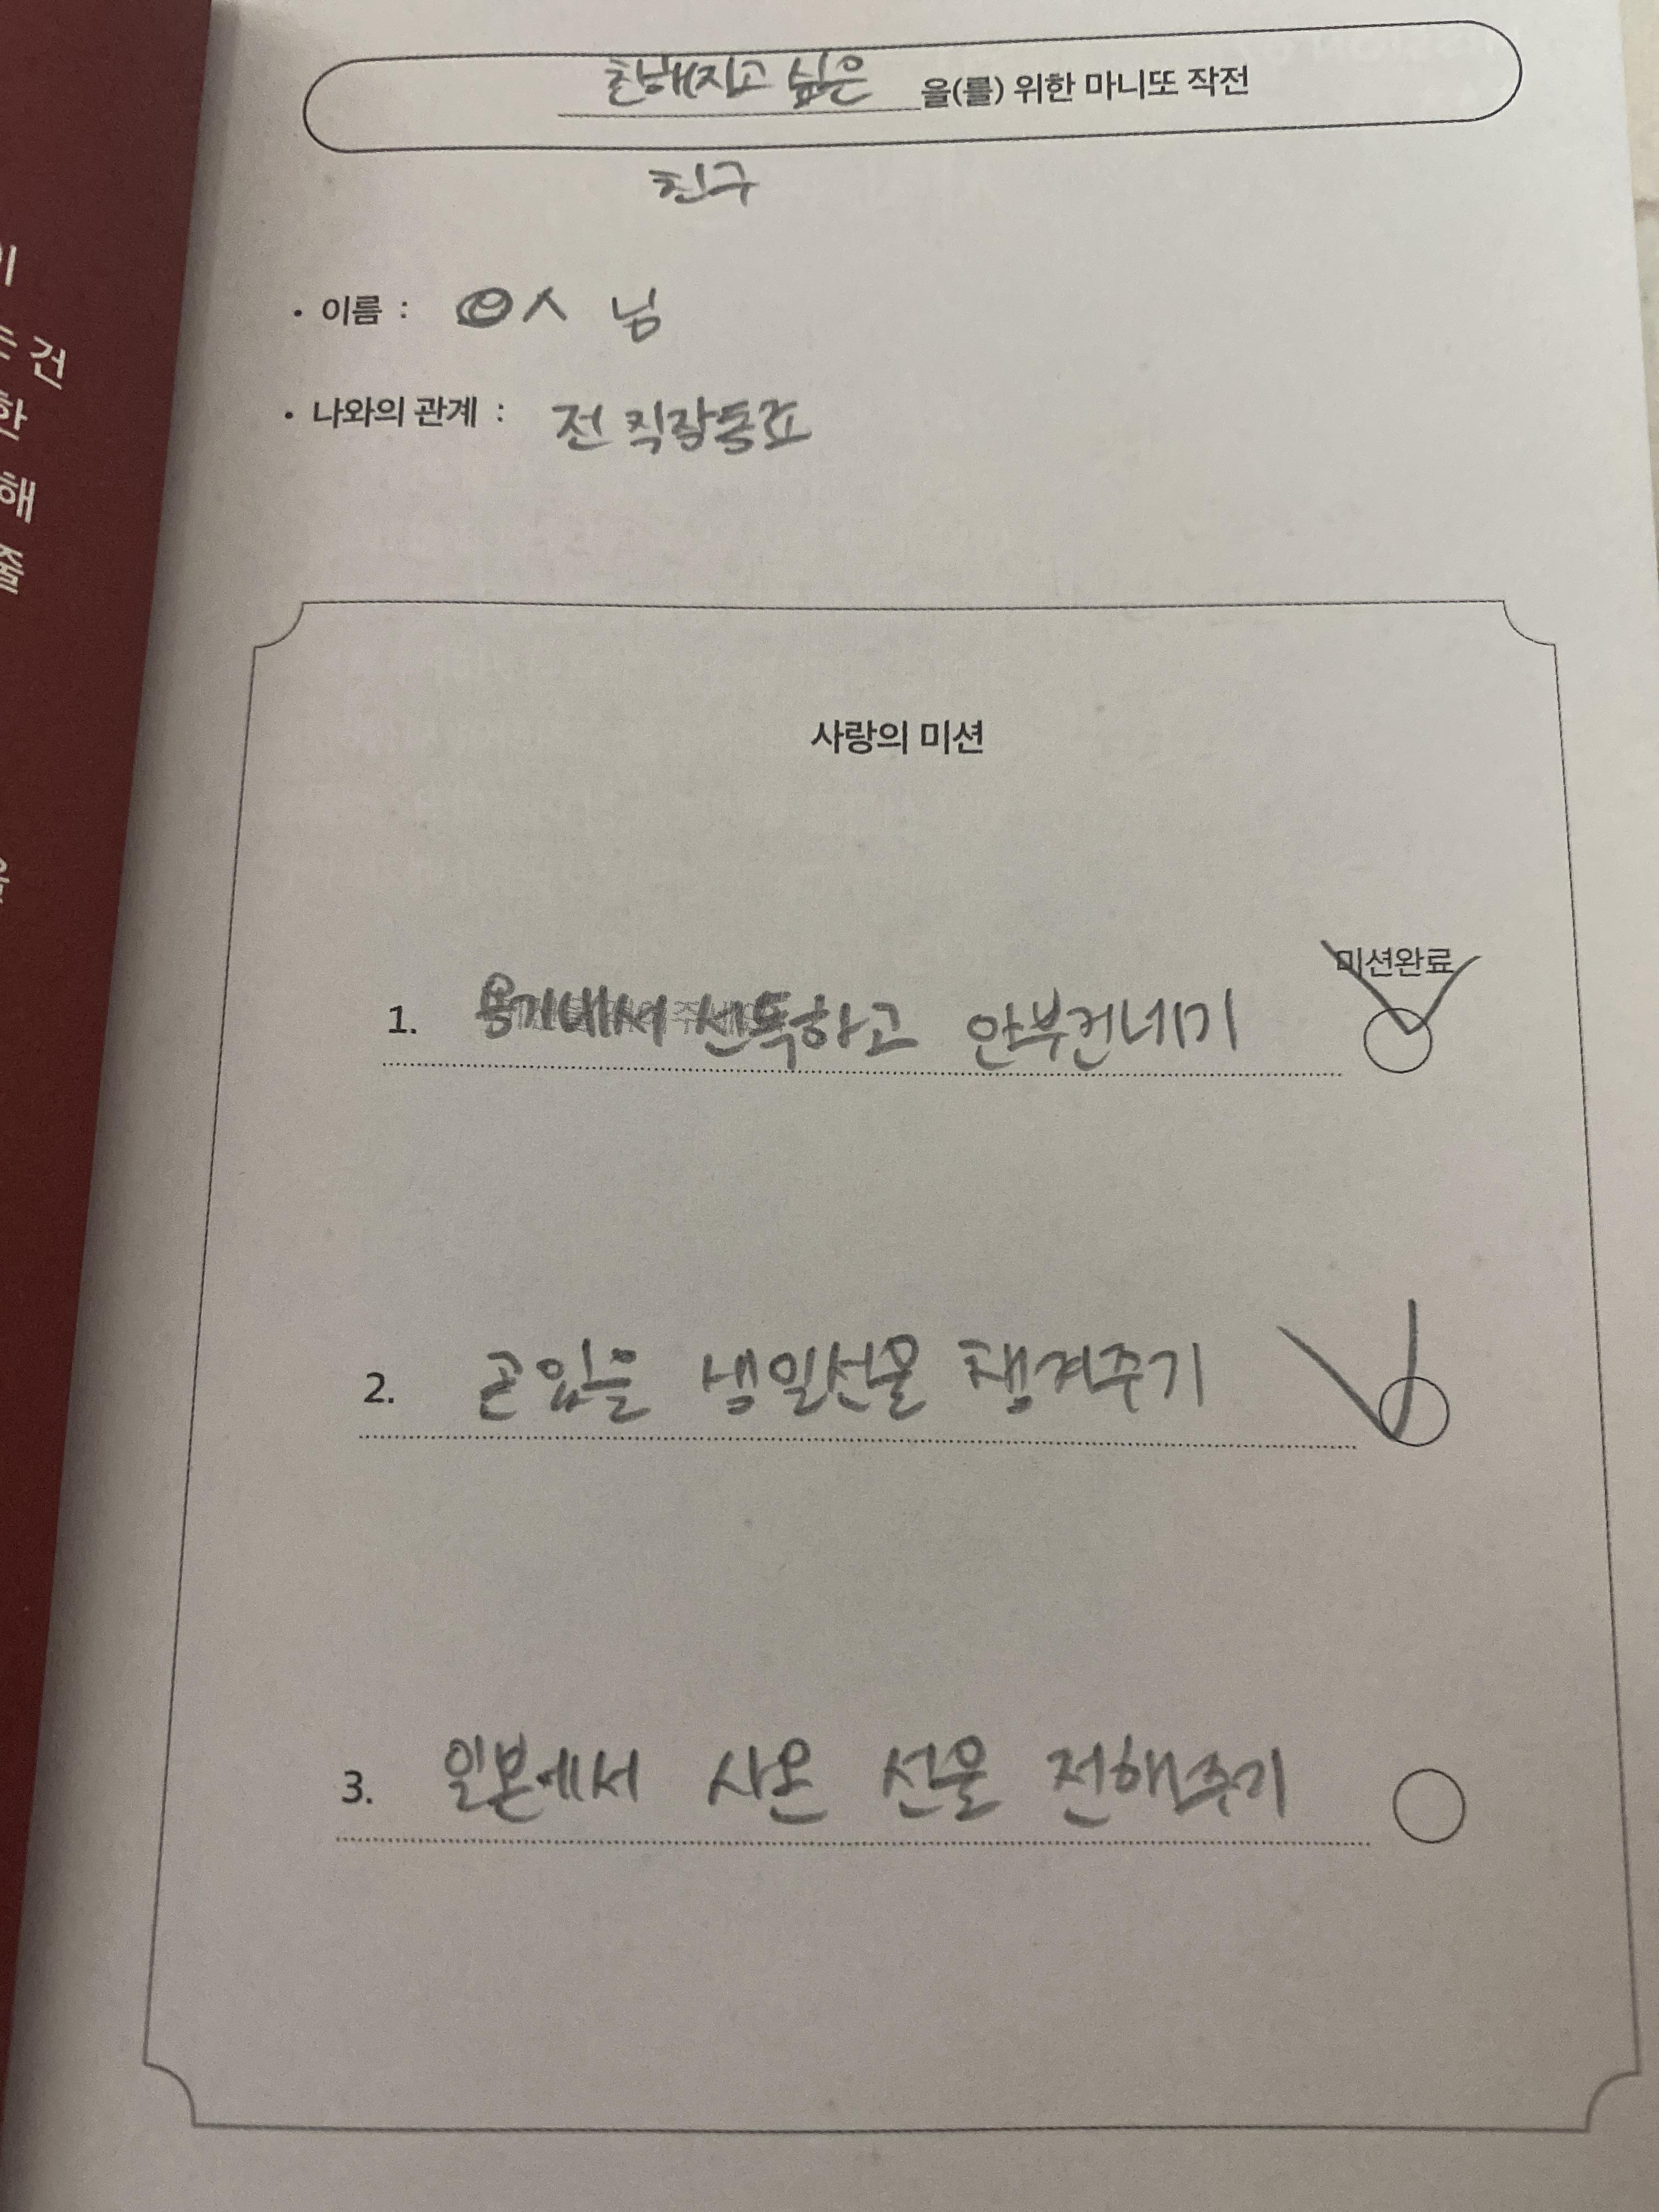 이
는 건
한
해
줄
을
친해지고 싶은 을(를) 위한 마니또 작전
친구
• 이름 : ㅇㅅ 님
• 나와의 관계 : 전 직장동료
사랑의 미션
미션완료
1. 용기내서 선톡하고 안부건네기
2. 곧 있을 생일선물 챙겨주기
3. 일본에서 사온 선물 전해주기